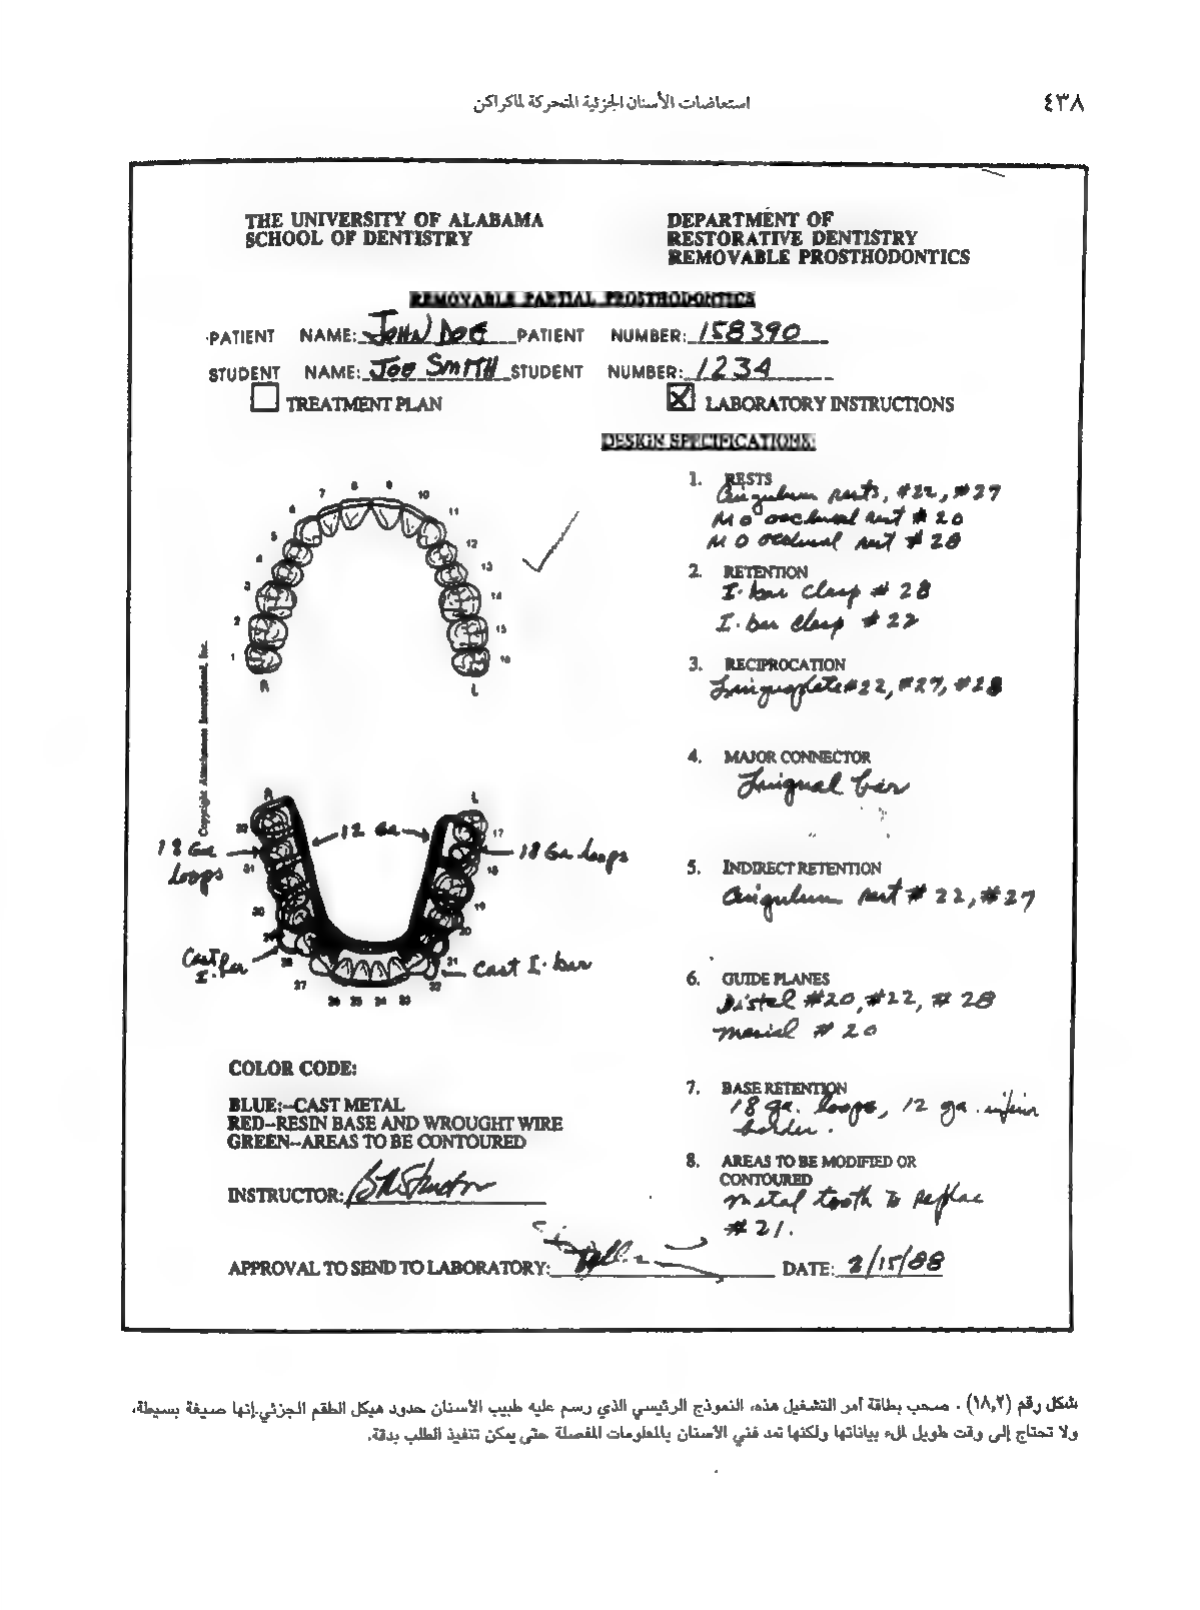 استعاضات الأسنان الجزئية المتحركة لماكراكن
٤٣٨
THE UNIVERSITY OF ALABAMA
SCHOOL OF DENTISTRY
DEPARTMENT OF
RESTORATIVE DENTISTRY
REMOVABLE PROSTHODONTICS
REMOVABLE PARTIAL PROSTHODONTICS
PATIENT NAME: JOHN DOE PATIENT NUMBER: 158390
STUDENT NAME: JOE SMITH STUDENT NUMBER: 1234
TREATMENT PLAN
LABORATORY INSTRUCTIONS
DESIGN SPECIFICATIONS:
1. RESTS
Cingulum rests, #22, #27
MO occlusal rest # 20
MO occlusal rest # 28
2. RETENTION
I-bar clasp # 28
I-bar clasp # 22
3. RECIPROCATION
Linguoplate #22, #27, #28
4. MAJOR CONNECTOR
Lingual bar
5. INDIRECT RETENTION
Cingulum rest # 22, #27
6. GUIDE PLANES
Distal #20, #22, # 28
Mesial # 20
7. BASE RETENTION
18 ga. loops, 12 ga. inferior
border.
8. AREAS TO BE MODIFIED OR
CONTOURED
Metal tooth to replace
# 21.
1 2 3 4 5 6 7 8 9 10 11 12 13 14 15 16
R L
Copyright Attachments International, Inc.
R L
12 Ga
18 Ga
loops
18 Ga loops
Cast
I-bar
Cast I-bar
32 31 30 29 28 27 26 25 24 23 22 21 20 19 18 17
COLOR CODE:
BLUE:--CAST METAL
RED--RESIN BASE AND WROUGHT WIRE
GREEN--AREAS TO BE CONTOURED
INSTRUCTOR:
APPROVAL TO SEND TO LABORATORY:
DATE: 2/15/88
شكل رقم (١٨,٢) . صحب بطاقة أمر التشغيل هذه، النموذج الرئيسي الذي رسم عليه طبيب الأسنان حدود هيكل الطقم الجزئي.إنها صيغة بسيطة،
ولا تحتاج إلى وقت طويل لملء بياناتها ولكنها تمد فني الأسنان بالمعلومات المفصلة حتى يمكن تنفيذ الطلب بدقة.